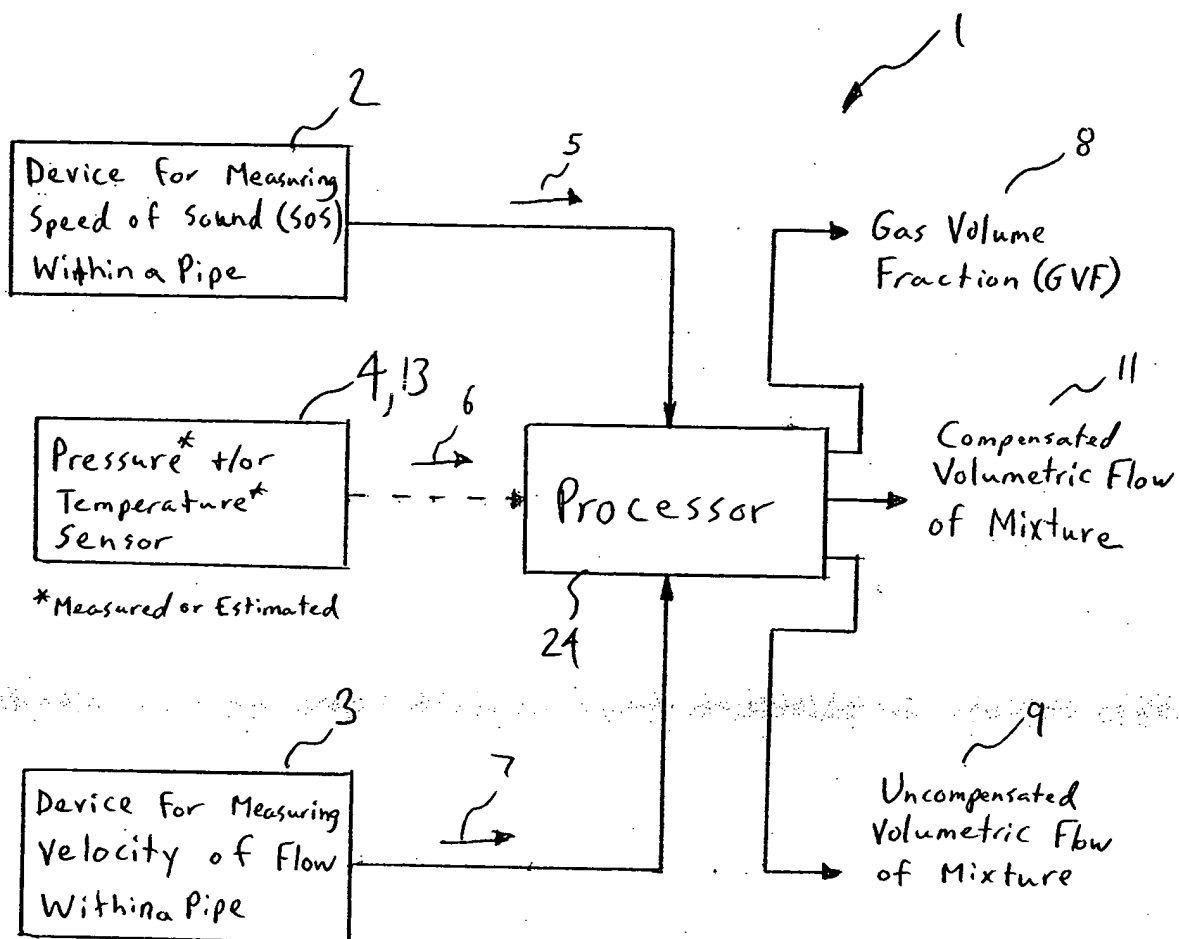 1
2
Device for Measuring
Speed of Sound (SOS)
Within a Pipe
5
8
Gas Volume
Fraction (GVF)
4,13
6
Pressure* +/or
Temperature*
Sensor
*Measured or Estimated
Processor
24
11
Compensated
Volumetric Flow
of Mixture
3
Device for Measuring
Velocity of Flow
Within a Pipe
7
9
Uncompensated
Volumetric Flow
of Mixture